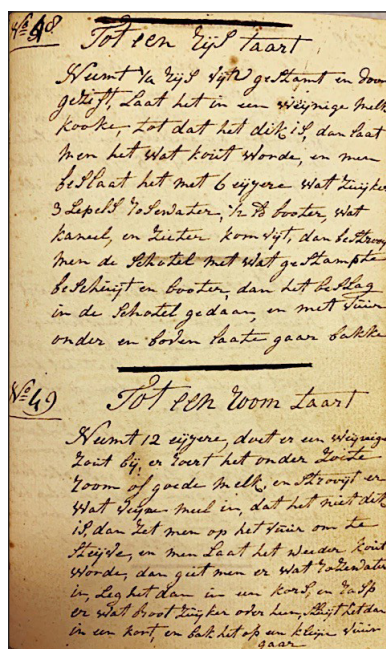 No 48
Tot een Rijs taart
Neemt 1/2 Rijs Fijn gestamt en door
gezift, Laat het in een Weijnige Melk
kooke, tot dat het dik is, dan Laat
men het wat kout worde, en men
beslaat het met 6 eijere wat Zuijker
3 Lepels Rosewater, 1/2 lb booter, wat
kaneel, en dan bestrooy
men de Schotel met wat gestampte
beschuijt en booter, dan het beslag
in de Schotel gedaan, en met Vuur
onder en boven laate gaar bakke
No 49
Tot een room taart
Neemt 12 eijere, doet er een weijnig
Zout bij, er roert het onder Zoete
room of goede melk, en strooyt er
wat Feyne meel in, dat het niet dik
is, dan Zet men op het Vuur om te
Steijve, en men Laat het weeder kout
worde, dan giet men er wat Rosewater
in, Leg het dan in een korst, en rasp
er wat broot Zuijker over hen, het dan
in een korst, en bak het op een kleyn Vuur
gaar